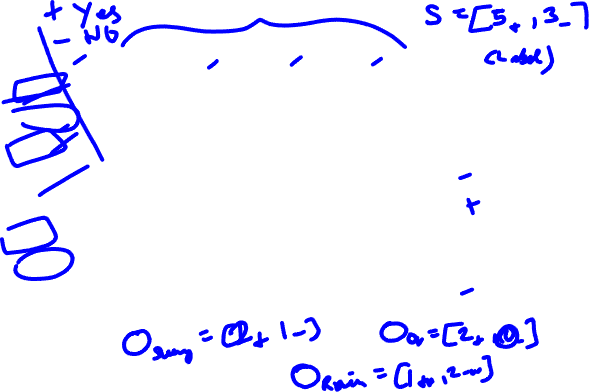 + Yes
- NO
S = [5+, 3-]
-
+
-
O Sunny = [2+ 1-]
O Ov = [2+, 0-]
O Rain = [1+, 2-]